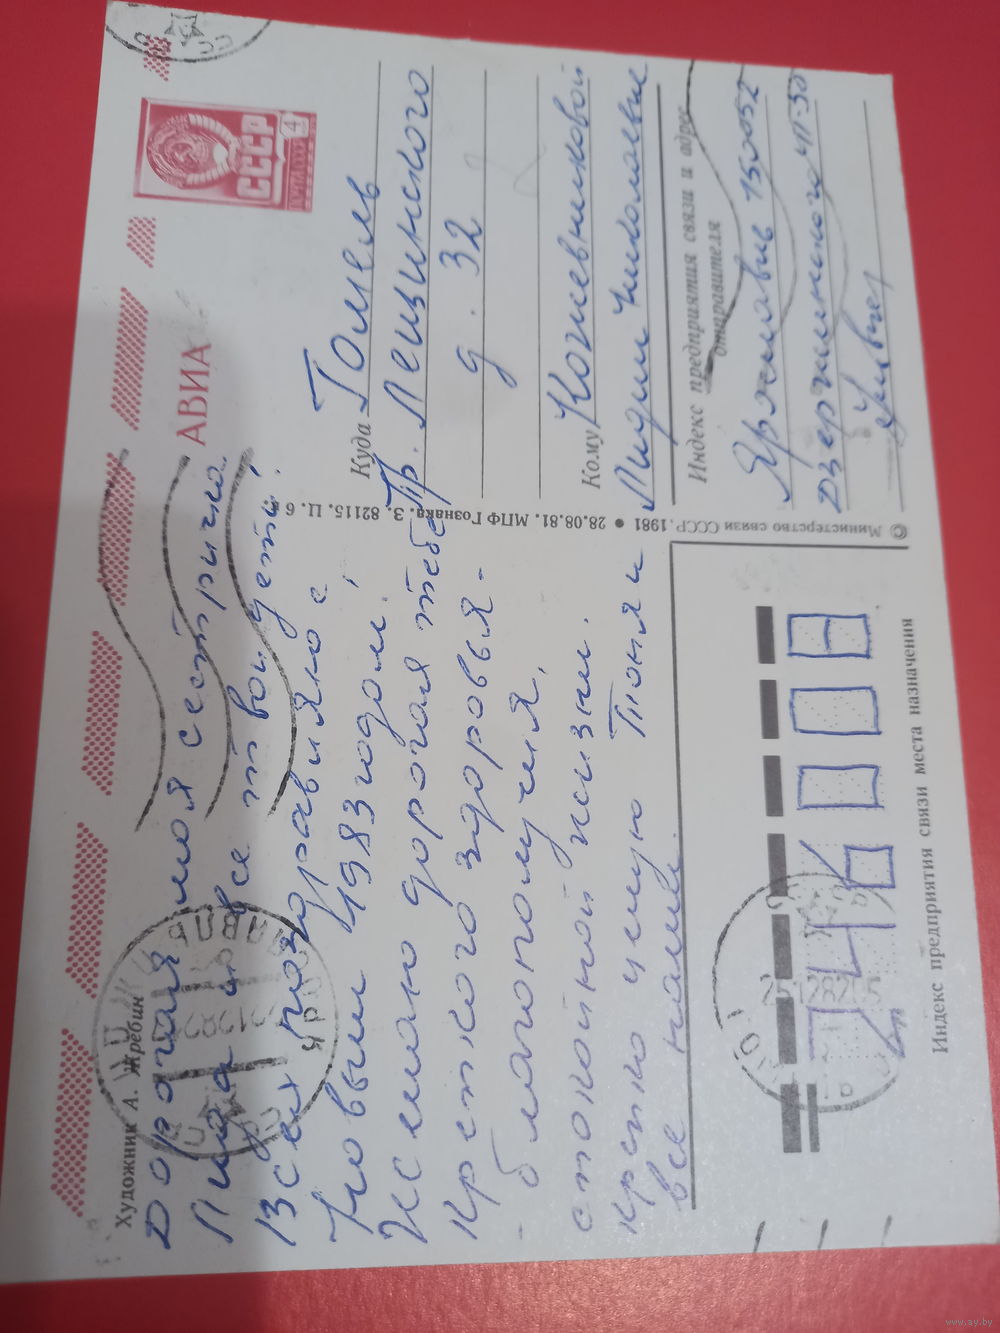 Художник А. Жребин
АВИА
СССР
ПОЧТА СССР
4
Дорогая моя сестричка
Лида и все твои дети!
Всех поздравляю с
Новым 1983 годом!
Желаю дорогая тебе
крепкого здоровья
благополучия,
спокойной жизни.
крепко целую Тоня и
все наши.
Куда Гомель
Пр. Лещинского
д. 32
Кому Кожевниковой
Лидии Николаевне
Индекс предприятия связи и адрес
отправителя
Ярославль 150052
Дзержинского
© Министерство связи СССР. 1981 ● 28.08.81. МПФ Гознака. З. 82115. Ц. 6
Индекс предприятия связи места назначения
www.ay.by